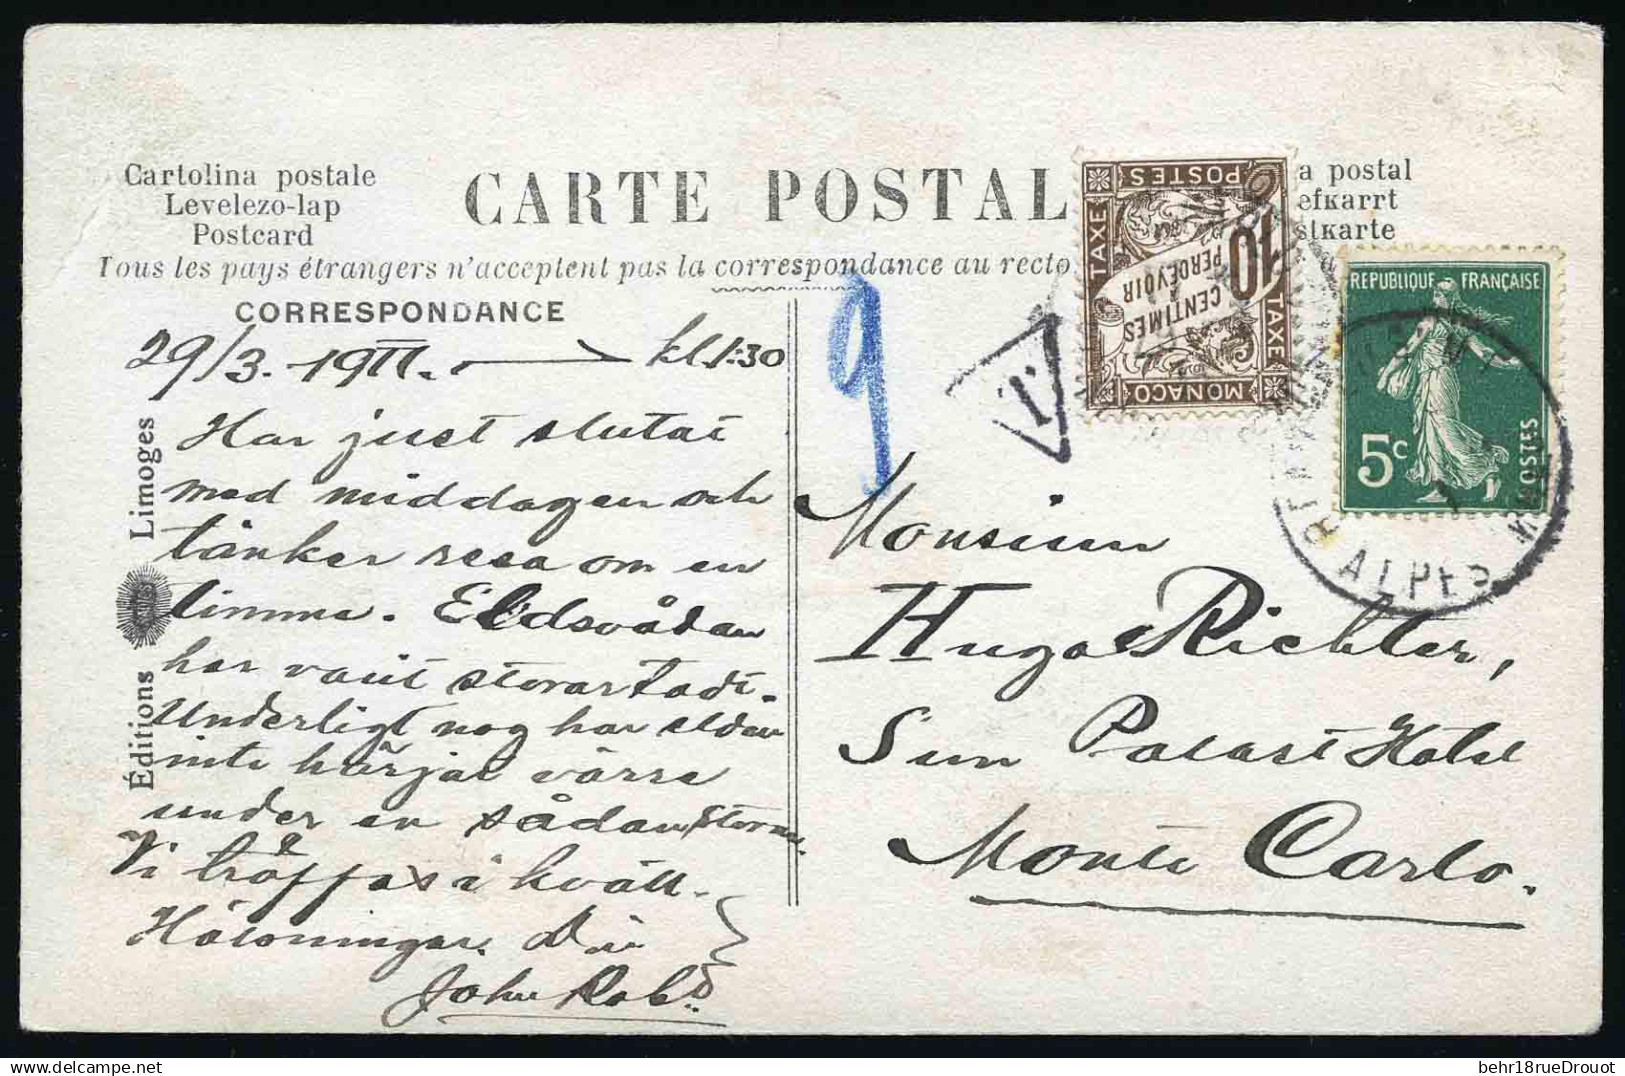 Cartolina postale
Levelezo-lap
Postcard
CARTE POSTAL
a postal
efkarrt
stkarte
Tous les pays étrangers n'acceptent pas la correspondance au recto
CORRESPONDANCE
29/3. 1911. kl. 1:30
Har just slutat
med middagen och
tänker resa om en
timma. Eldsvådan
har varit storartad.
Underligt nog har elden
inte härjat värre
under en sådan storm.
Vi träffas i kväll.
Hälsningar. Din
John
Éditions Limoges
9
T
POSTES
TAXE
10
CENTIMES
PERCEVOIR
TAXE
MONACO
REPUBLIQUE FRANÇAISE
5c
POSTES
ALPES
Monsieur
Hugo Richter,
Sun Palast Hotel
Monte Carlo.
behr18rueDrouot